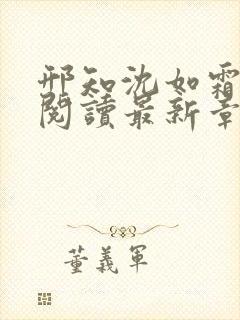 邢知沈如霜
閱讀最新章
董義軍